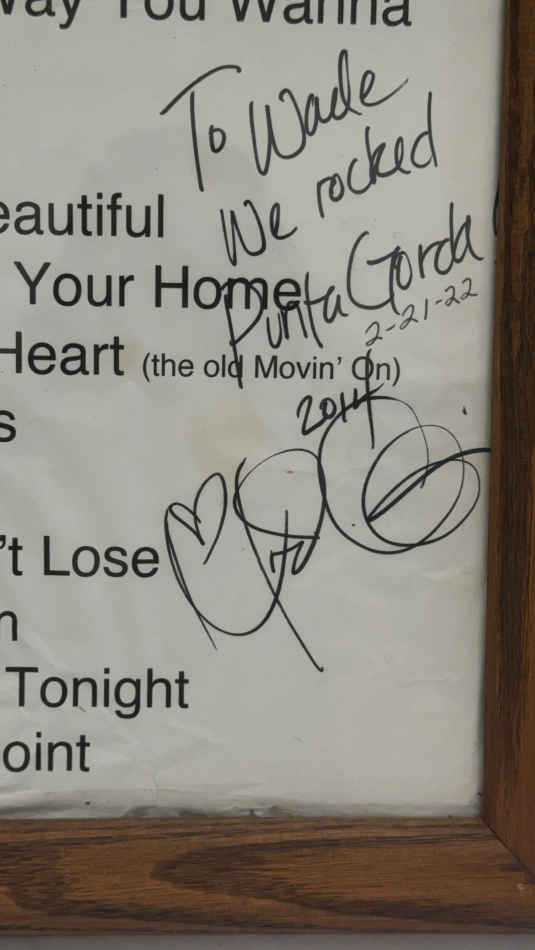 way You Wanna
To Wade
We rocked
eautiful
Punta Gorda
Your Home
2-21-22
Heart (the old Movin' On)
2014
s
't Lose
n
Tonight
oint